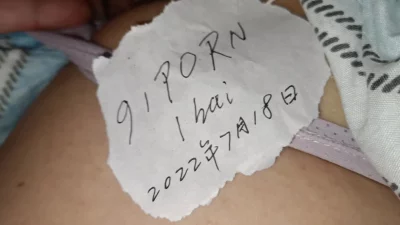 91PORN
1bai
2022年7月18日